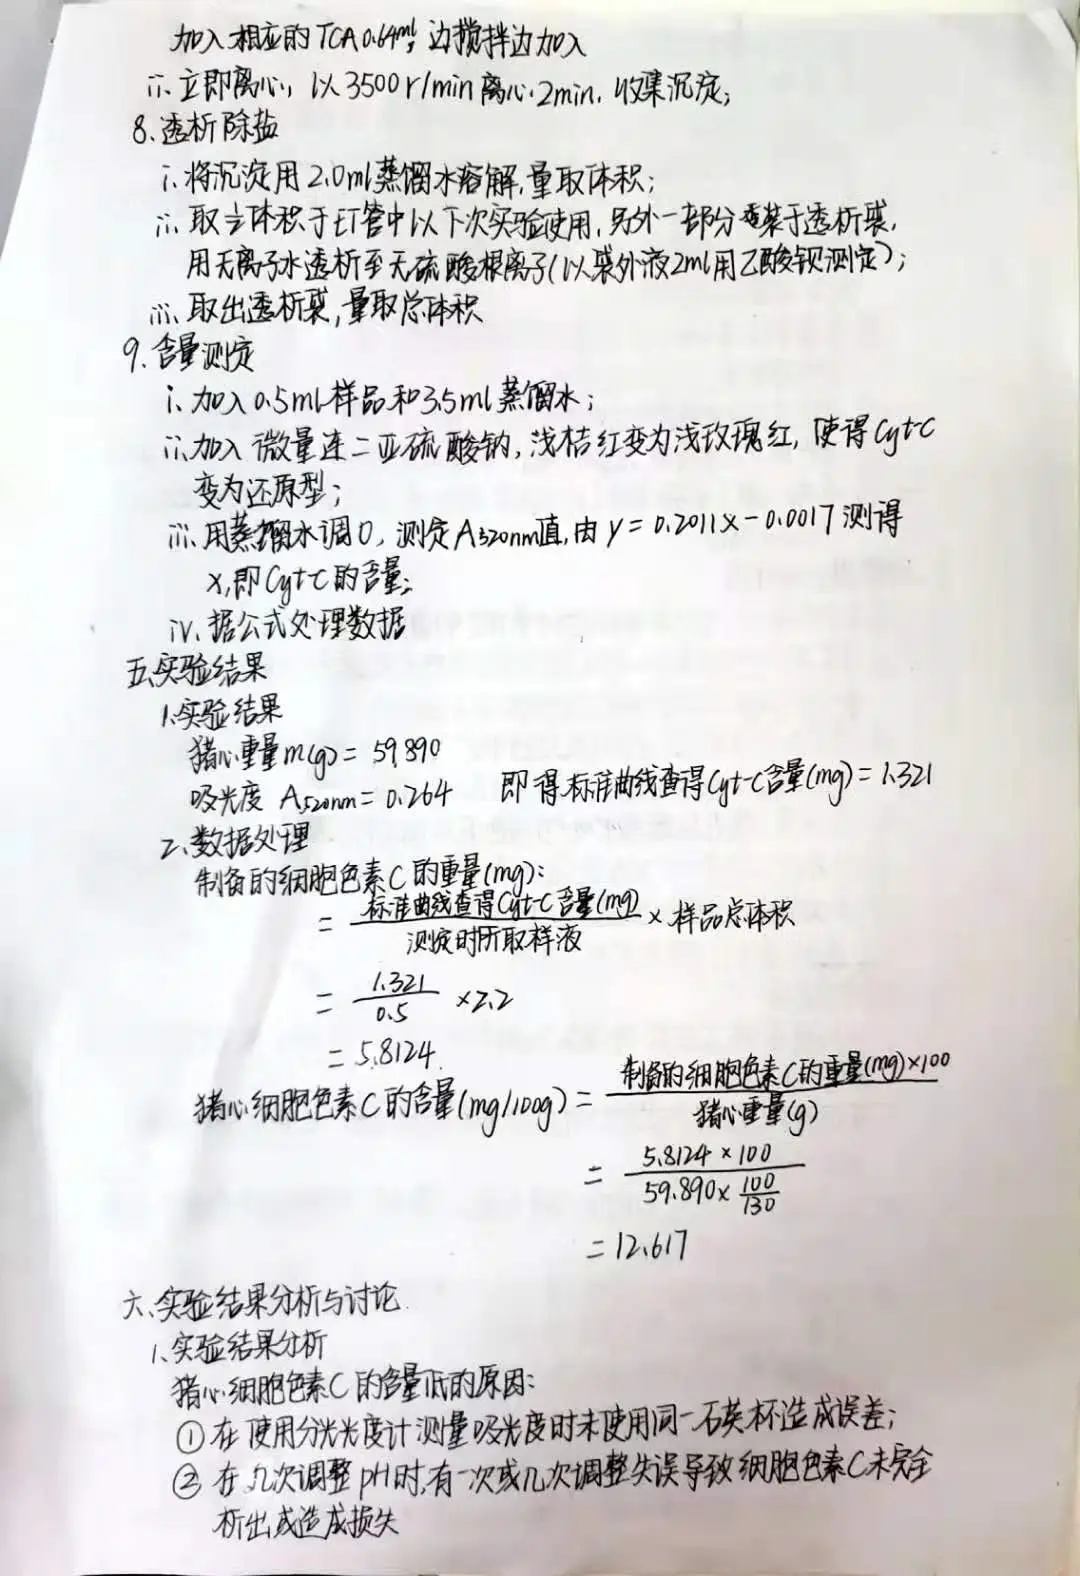 加入相应的TCA 0.64ml,边搅拌边加入
ii.立即离心,以3500r/min离心2min,收集沉淀;
8、透析除盐
i.将沉淀用2.0ml蒸馏水溶解,量取体积;
ii.取体积于EP管中以下次实验使用,另外一部分装于透析袋,
用无离子水透析至无硫酸根离子(以袋外液2ml用乙酸钡测定);
iii.取出透析袋,量取总体积
9.含量测定
i.加入0.5ml样品和3.5ml蒸馏水;
ii.加入微量连二亚硫酸钠,浅桔红变为浅玫瑰红,使得Cyt-C
变为还原型;
iii.用蒸馏水调0,测定A520nm值,由y=0.2011x-0.0017测得
x,即Cyt-C的含量;
iv.据公式处理数据
五、实验结果
1、实验结果
猪心重量m(g)=59.890
吸光度 A520nm=0.264 即得标准曲线查得Cyt-C含量(mg)=1.321
2、数据处理
制备的细胞色素C的重量(mg):
= 标准曲线查得Cyt-C含量(mg)/测定时所取样液 × 样品总体积
= 1.321/0.5 ×2.2
=5.8124
猪心细胞色素C的含量(mg/100g)= 制备的细胞色素C的重量(mg)×100/猪心重量(g)
= 5.8124×100/59.890×100/130
=12.617
六、实验结果分析与讨论
1、实验结果分析
猪心细胞色素C的含量低的原因:
①在使用分光光度计测量吸光度时未使用同一石英杯造成误差;
②在几次调整pH时,有一次或几次调整失误导致细胞色素C未完全
析出或造成损失